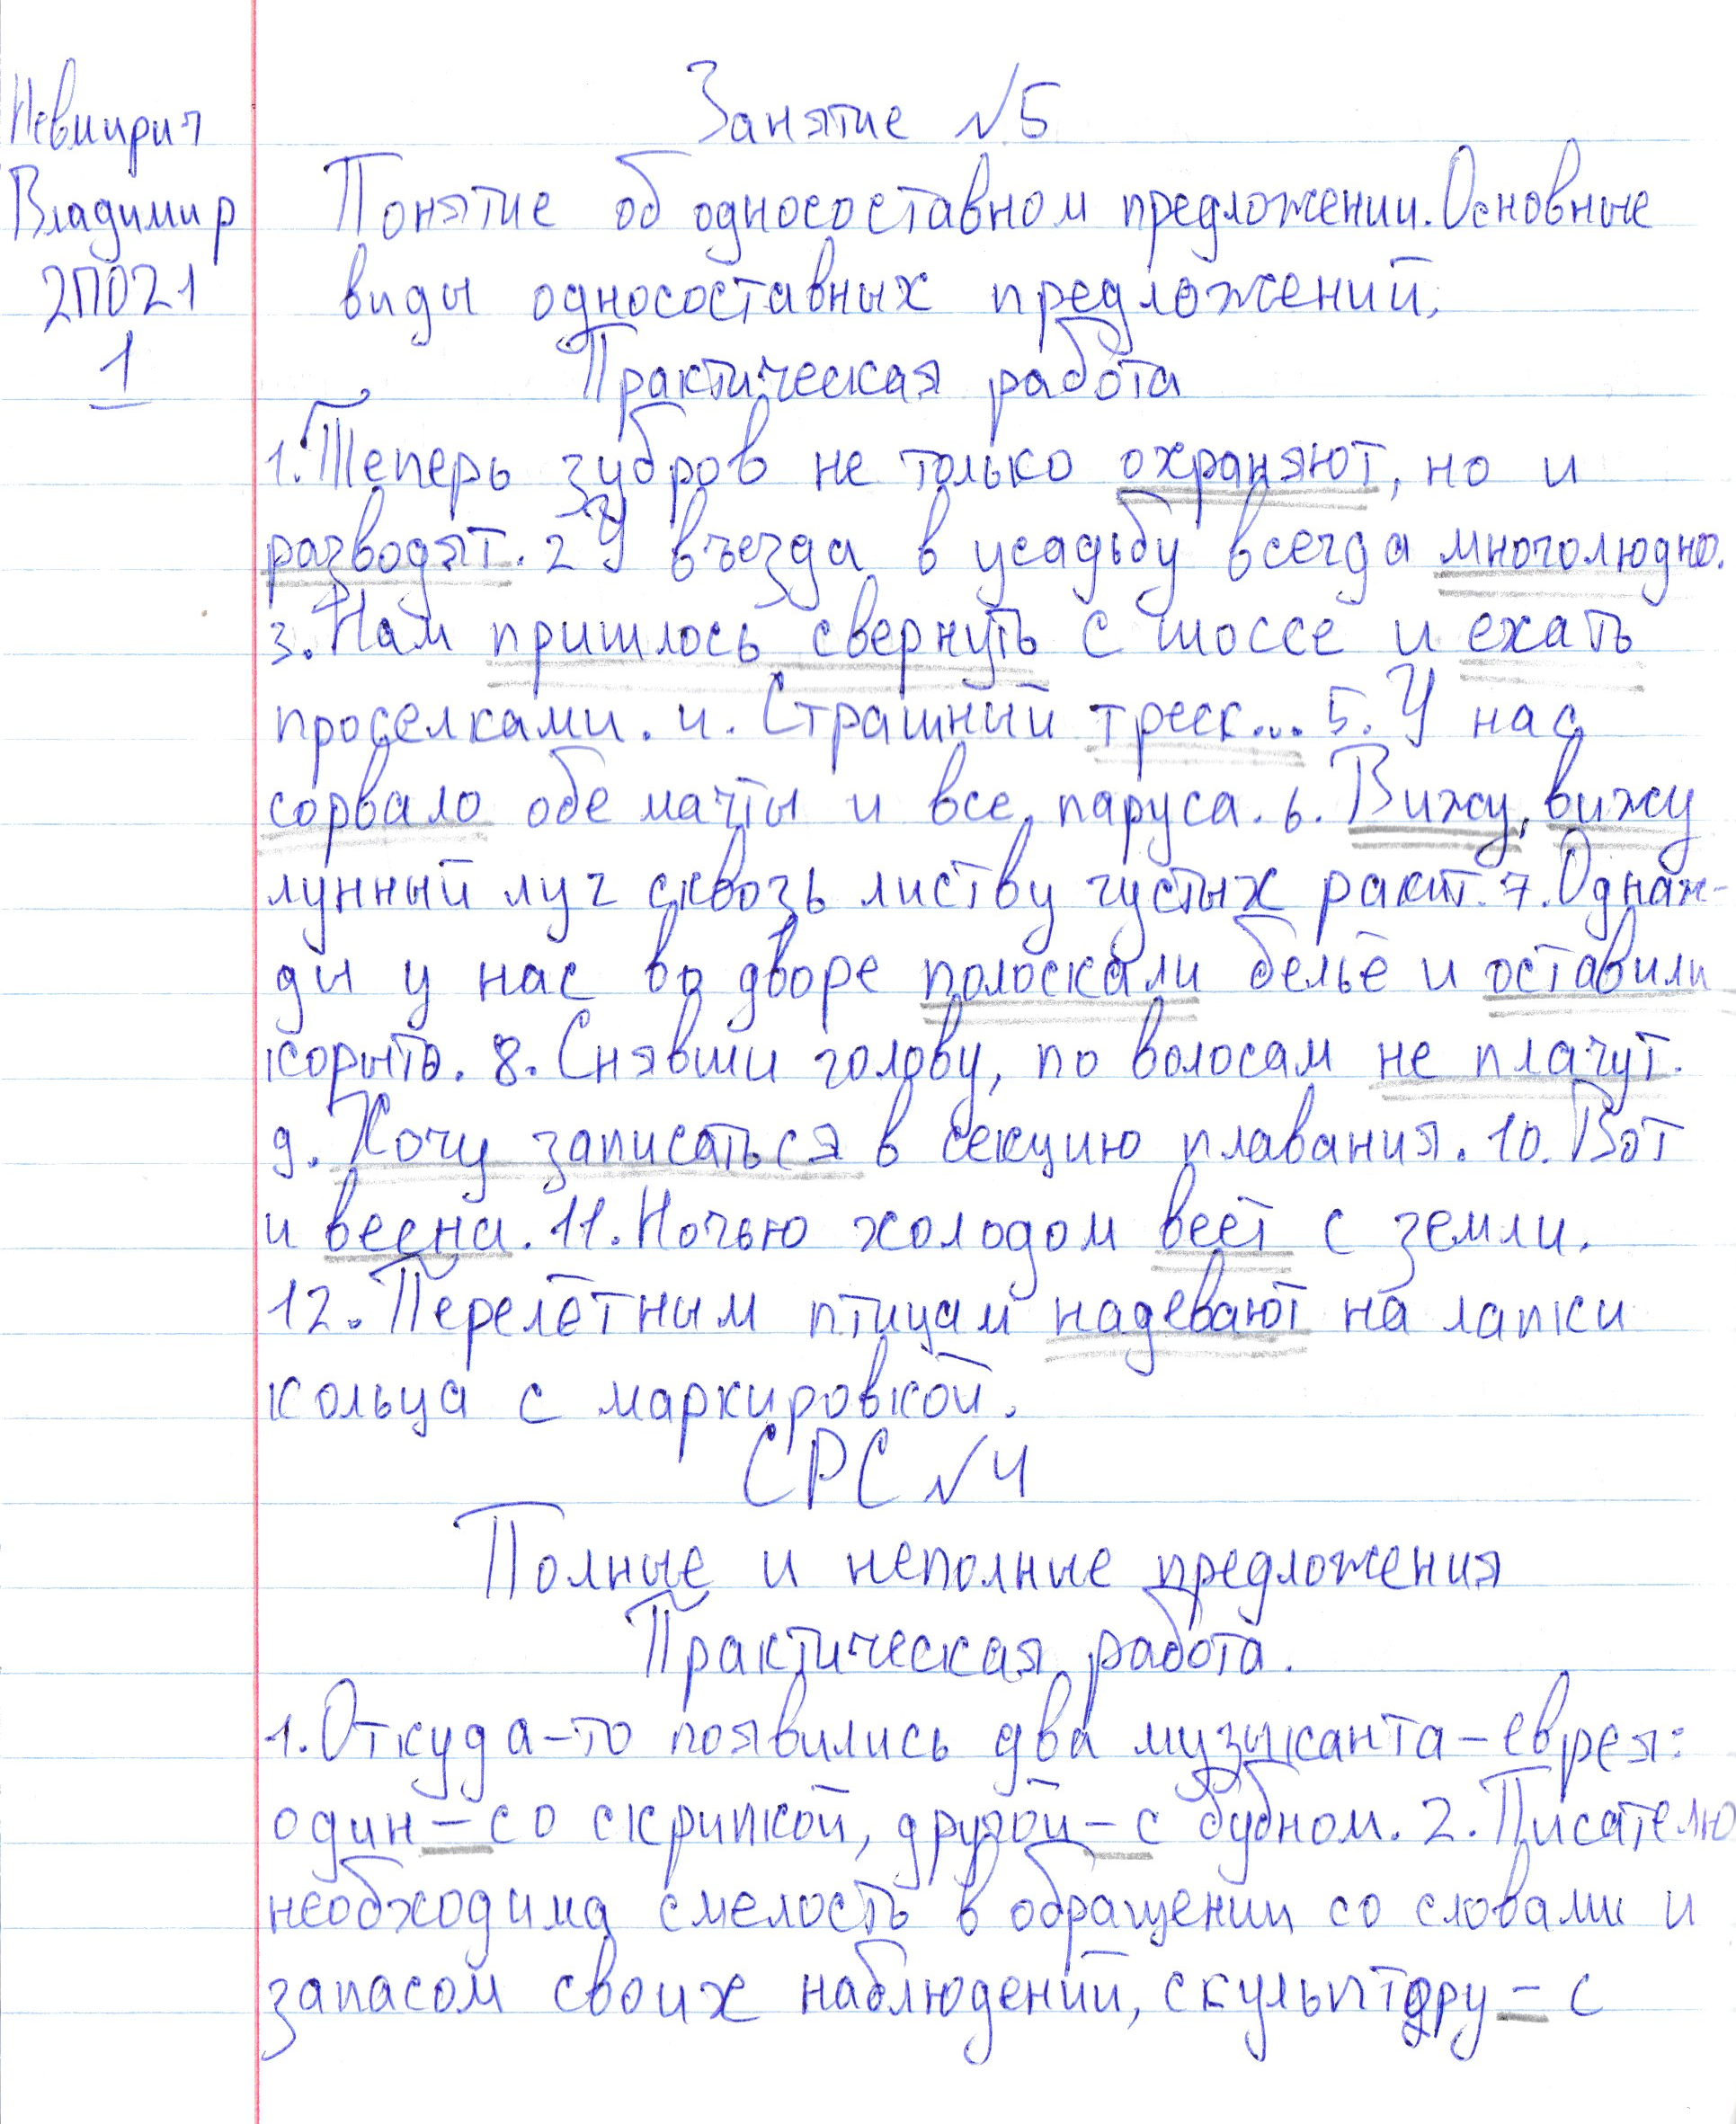 Владимир
2ПО21
1
Занятие №5
Понятие об односоставном предложении. Основные
виды односоставных предложений.
Практическая работа
1. Теперь зубров не только охраняют, но и
разводят. 2 У въезда в усадьбу всегда многолюдно.
3. Нам пришлось свернуть с шоссе и ехать
проселками. 4. Страшный треск... 5. У нас
сорвало обе мачты и все паруса. 6. Вижу, вижу
лунный луч сквозь листву густых ракит. 7. Однаж-
ды у нас во дворе полоскали бельё и оставили
корыто. 8. Снявши голову, по волосам не плачут.
9. Хочу записаться в секцию плавания. 10. Вот
и весна. 11. Ночью холодом веет с земли.
12. Перелётным птицам надевают на лапки
кольца с маркировкой.
СРС №4
Полные и неполные предложения
Практическая работа.
1. Откуда-то появились два музыканта-еврея:
один – со скрипкой, другой – с бубном. 2. Писателю
необходима смелость в обращении со словами и
запасом своих наблюдений, скульптору – с